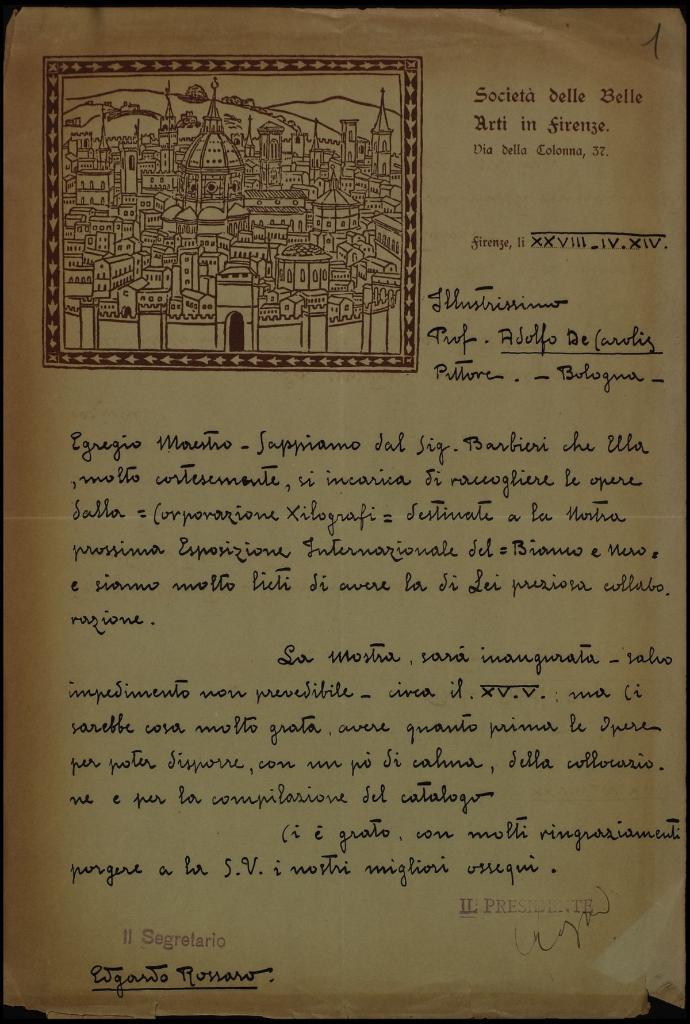 1
Società delle Belle
Arti in Firenze.
Via della Colonna, 37.
Firenze, li XXVIII-IV.XIV.
Illustrissimo
Prof. Adolfo De Carolis
Pittore. - Bologna -
Egregio Maestro - Sappiamo dal Sig. Barbieri che Ella
, molto cortesemente, si incarica di raccogliere le opere
dalla = Corporazione Xilografi = destinate a la Nostra
prossima Esposizione Internazionale del = Bianco e Nero =
e siamo molto lieti di avere la di Lei preziosa collabo.
razione.
La Mostra, sarà inaugurata - salvo
impedimento non prevedibile - circa il. XV.V. ; ma Ci
sarebbe cosa molto grata, avere quanto prima le Opere
per poter disporre, con un pò di calma, della collocazio.
ne e per la compilazione del catalogo
Ci è grato, con molti ringraziamenti
porgere a la S.V. i nostri migliori ossequi.
IL PRESIDENTE
Il Segretario
Edgardo Rossaro.